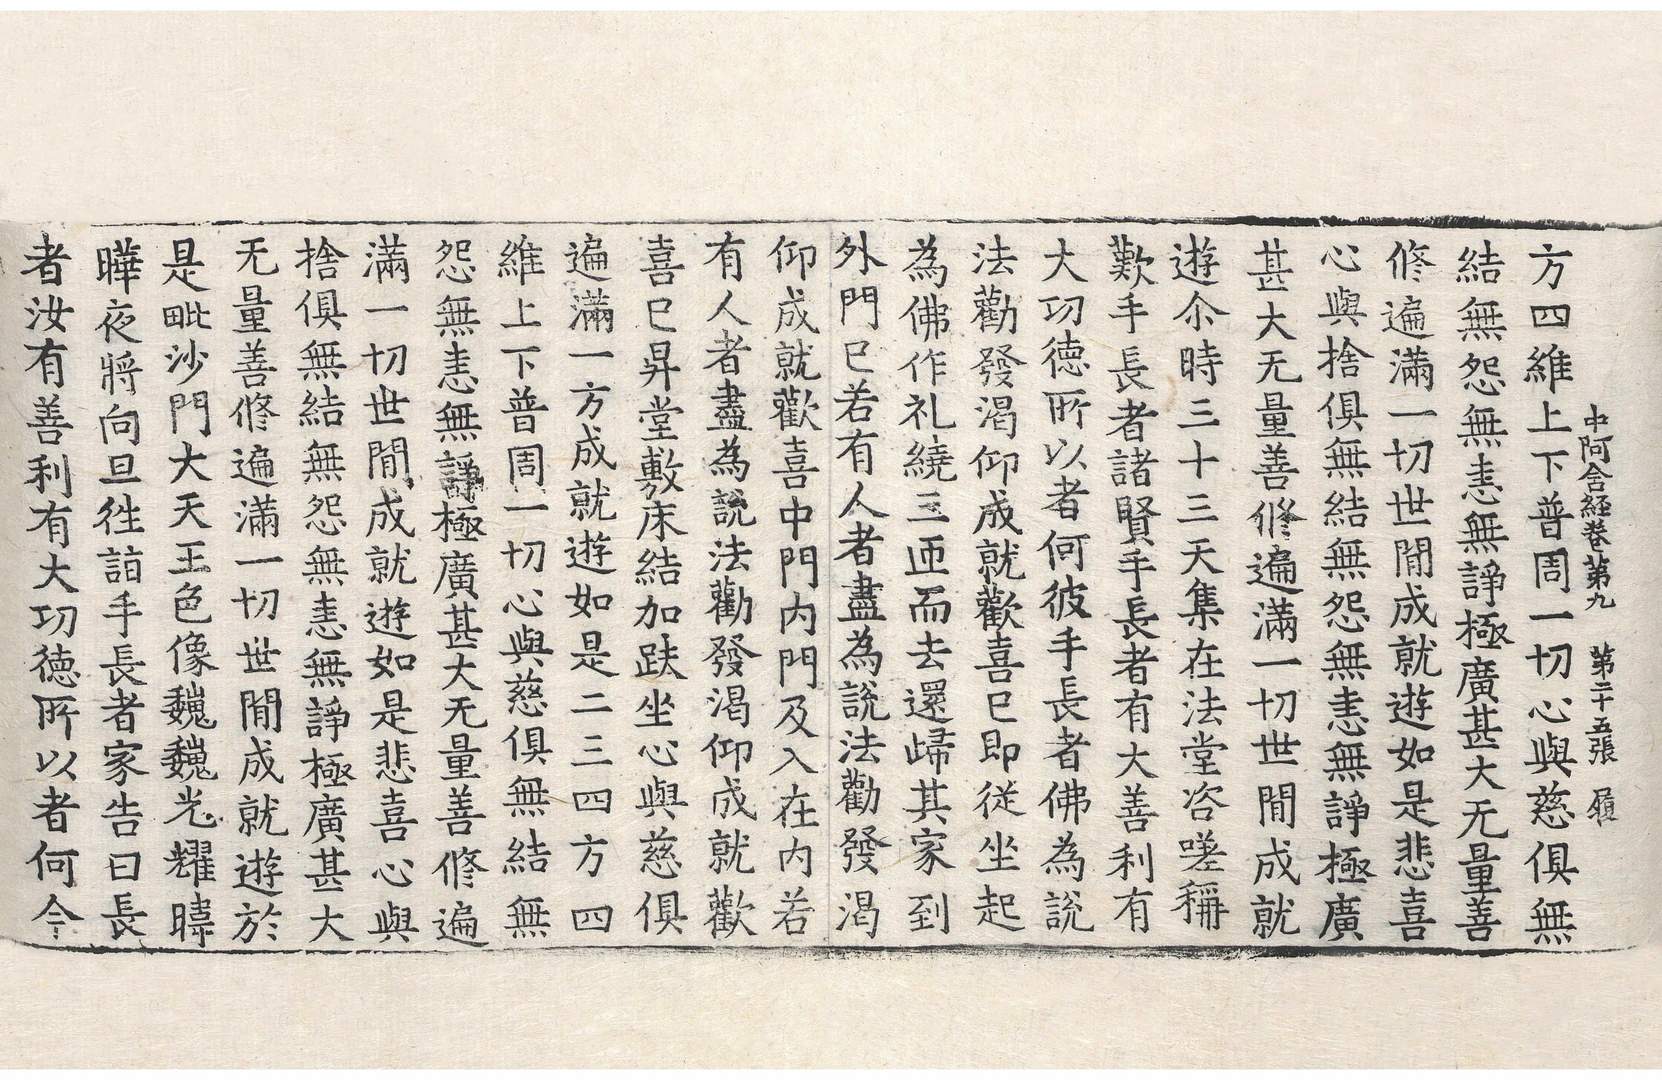 中阿含經卷第九　第二十五張　履
方四維上下普周一切心與慈俱無
結無怨無恚無諍極廣甚大无量善
修遍滿一切世間成就遊如是悲喜
心與捨俱無結無怨無恚無諍極廣
甚大无量善修遍滿一切世間成就
遊尒時三十三天集在法堂咨嗟稱
歎手長者諸賢手長者有大善利有
大功德所以者何彼手長者佛為說
法勸發渴仰成就歡喜已即從坐起
為佛作礼繞三匝而去還歸其家到
外門已若有人者盡為說法勸發渴
仰成就歡喜中門內門及入在內若
有人者盡為說法勸發渴仰成就歡
喜已昇堂敷床結加趺坐心與慈俱
遍滿一方成就遊如是二三四方四
維上下普周一切心與慈俱無結無
怨無恚無諍極廣甚大无量善修遍
滿一切世間成就遊如是悲喜心與
捨俱無結無怨無恚無諍極廣甚大
无量善修遍滿一切世間成就遊於
是毗沙門大天王色像巍巍光耀暐
曄夜將向旦往詣手長者家告曰長
者汝有善利有大功德所以者何今